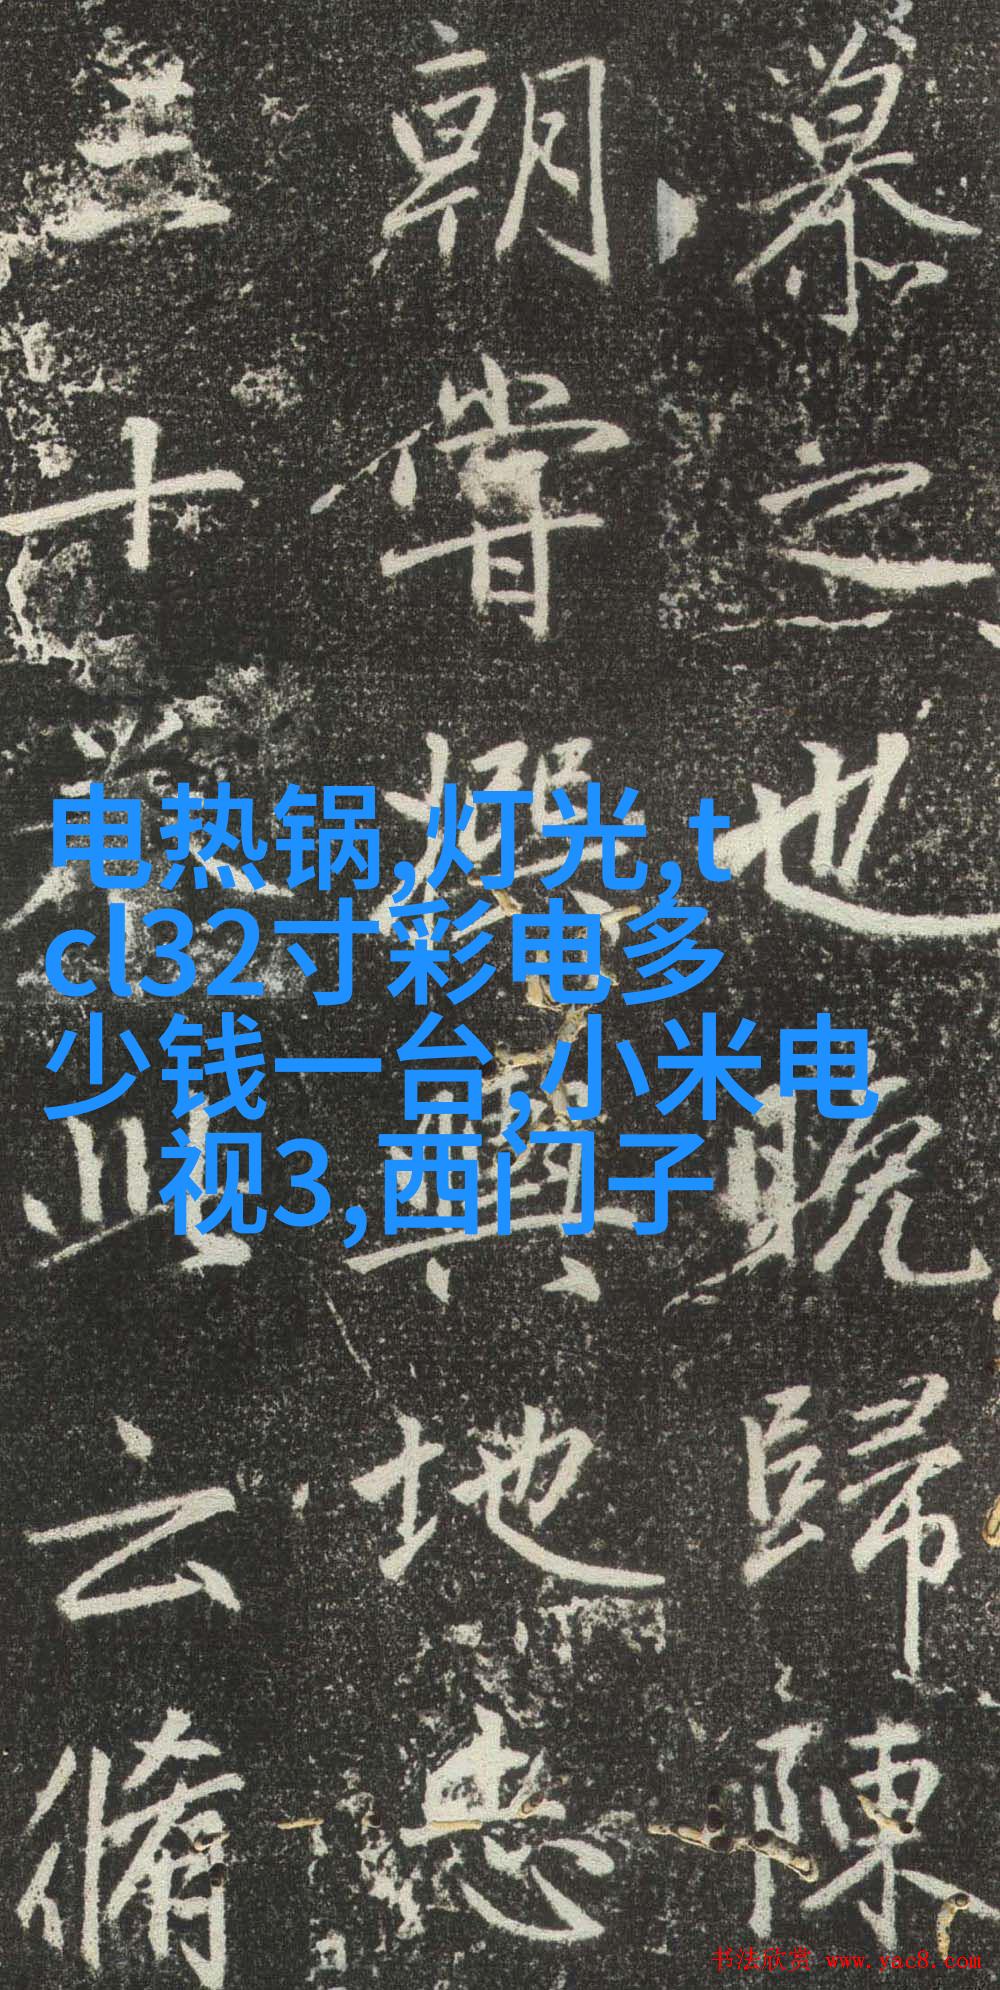 慕之也晚歸陳
朝嘗撰輿地志
三十卷此云脩
电热锅,灯光,t
cl32寸彩电多
少钱一台,小米电
视3,西门子
书法欣赏 www.yac8.com